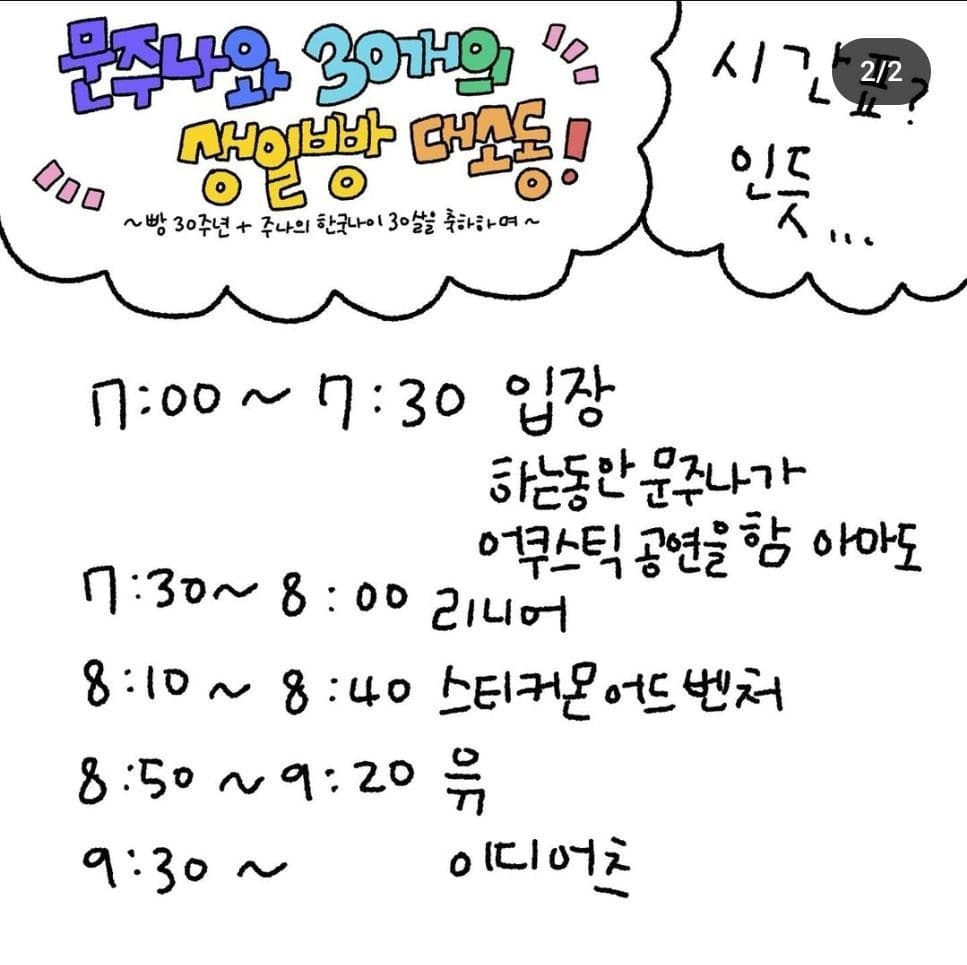 문주나와 30개의
생일빵 대소동!
~빵 30주년 + 주나의 한국나이 30살을 축하하며~
시간표?
2/2
인듯...
7:00 ~ 7:30 입장
하는동안 문주나가
어쿠스틱 공연을 함 아마도
7:30~ 8:00 리니어
8:10 ~ 8:40 스티커몬 어드벤처
8:50 ~ 9:20 유
9:30 ~ 이디어츠